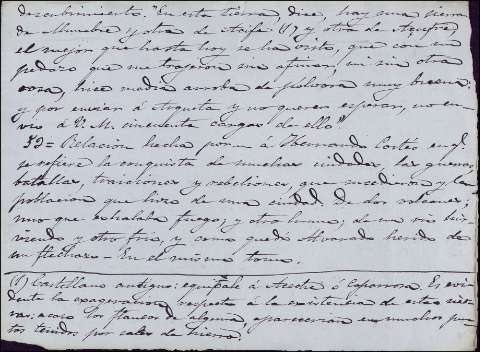 descubrimiento. "En esta tierra, dice, hay una sierra
de Alumbre y otra de Azife (1) y otra de Azufre,
el mejor que hasta hoy se ha visto, que con un
pedazo que me trajeron sin afinar, ni sin otra
cosa, hice media arroba de pólvora muy buena:
y por enviar á Argueta y no querer esperar, no en-
vio á V. M. cincuenta cargas de ello".
32= Relacion hecha por á Hernando Cortés en q.
se refiere la conquista de muchas ciudades, las guerras,
batallas, traiciones y rebeliones, que sucedieron y la
poblacion que hizo de una ciudad de dos volcanes;
uno que exhalaba fuego, y otro humo; de un rio hir-
viendo y otro frio, y como quedó Alvarado herido de
un flechazo - En el mismo tomo.
(1) Castellano antiguo: equivale á Aceche ó Caparrosa. Es evi-
dente la exageracion respecto á la existencia de estas sier-
ras; acaso los flancos de alguna, aparecerian en muchos pun-
tos teñidos por sales de hierro.